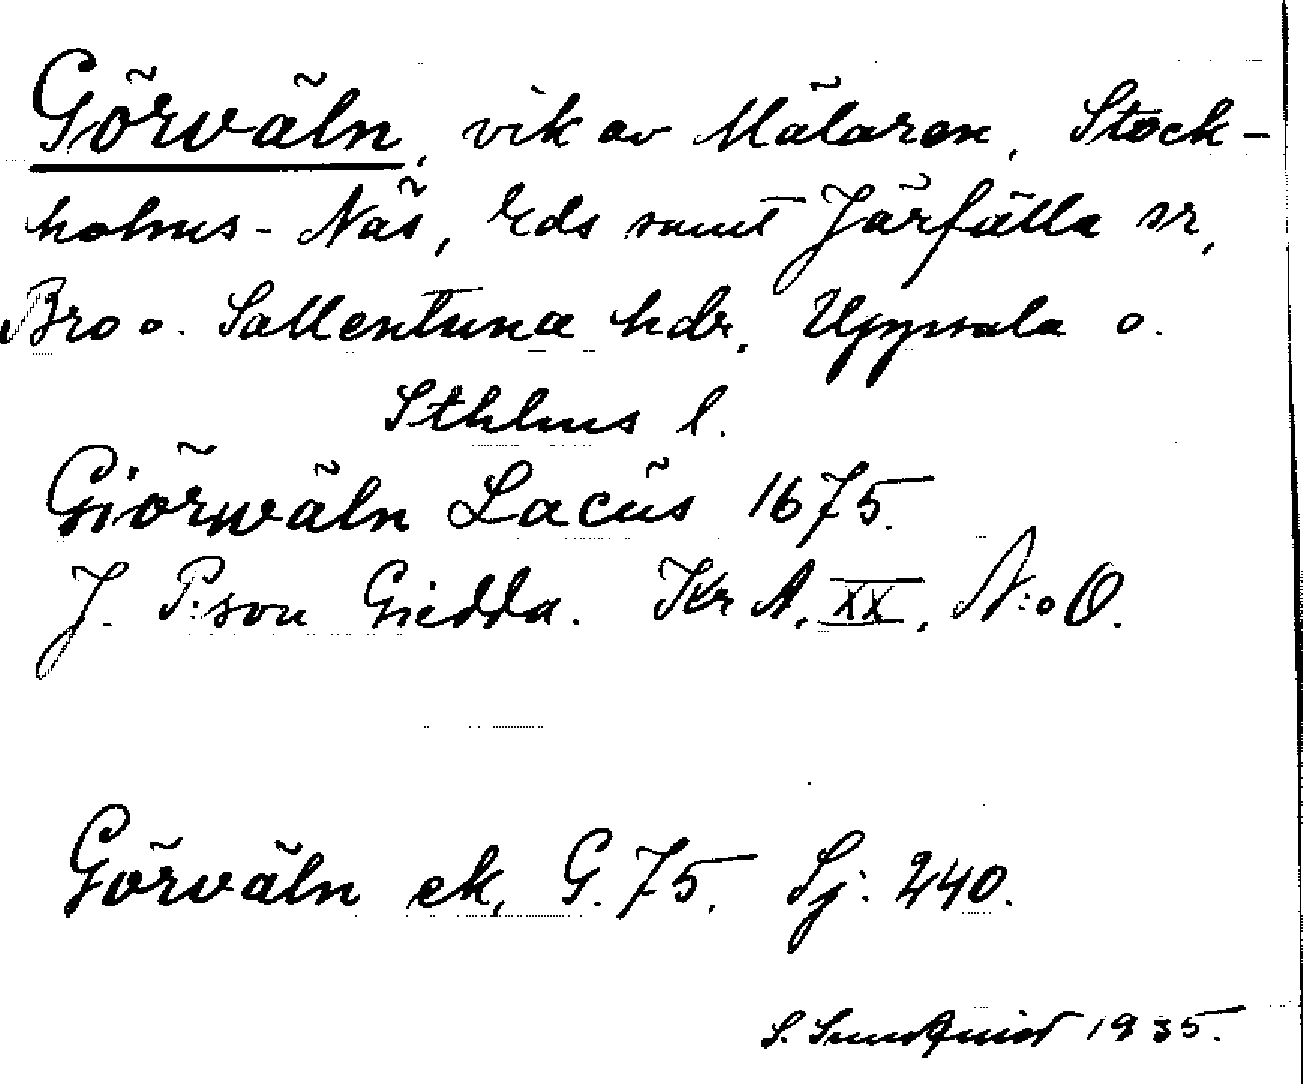 Görväln, vik av Mälaren, Stock-
holms-Näs, Eds samt Järfälla sr,
Bro o. Sollentuna hdr, Uppsala o.
Sthlms l.
Giörwäln Lacus 1675.
J. P:son Giedda. Kr A. XX, N:o O.
Görväln ek, G. 75. Sj. 240.
S. Sundquist 1935.